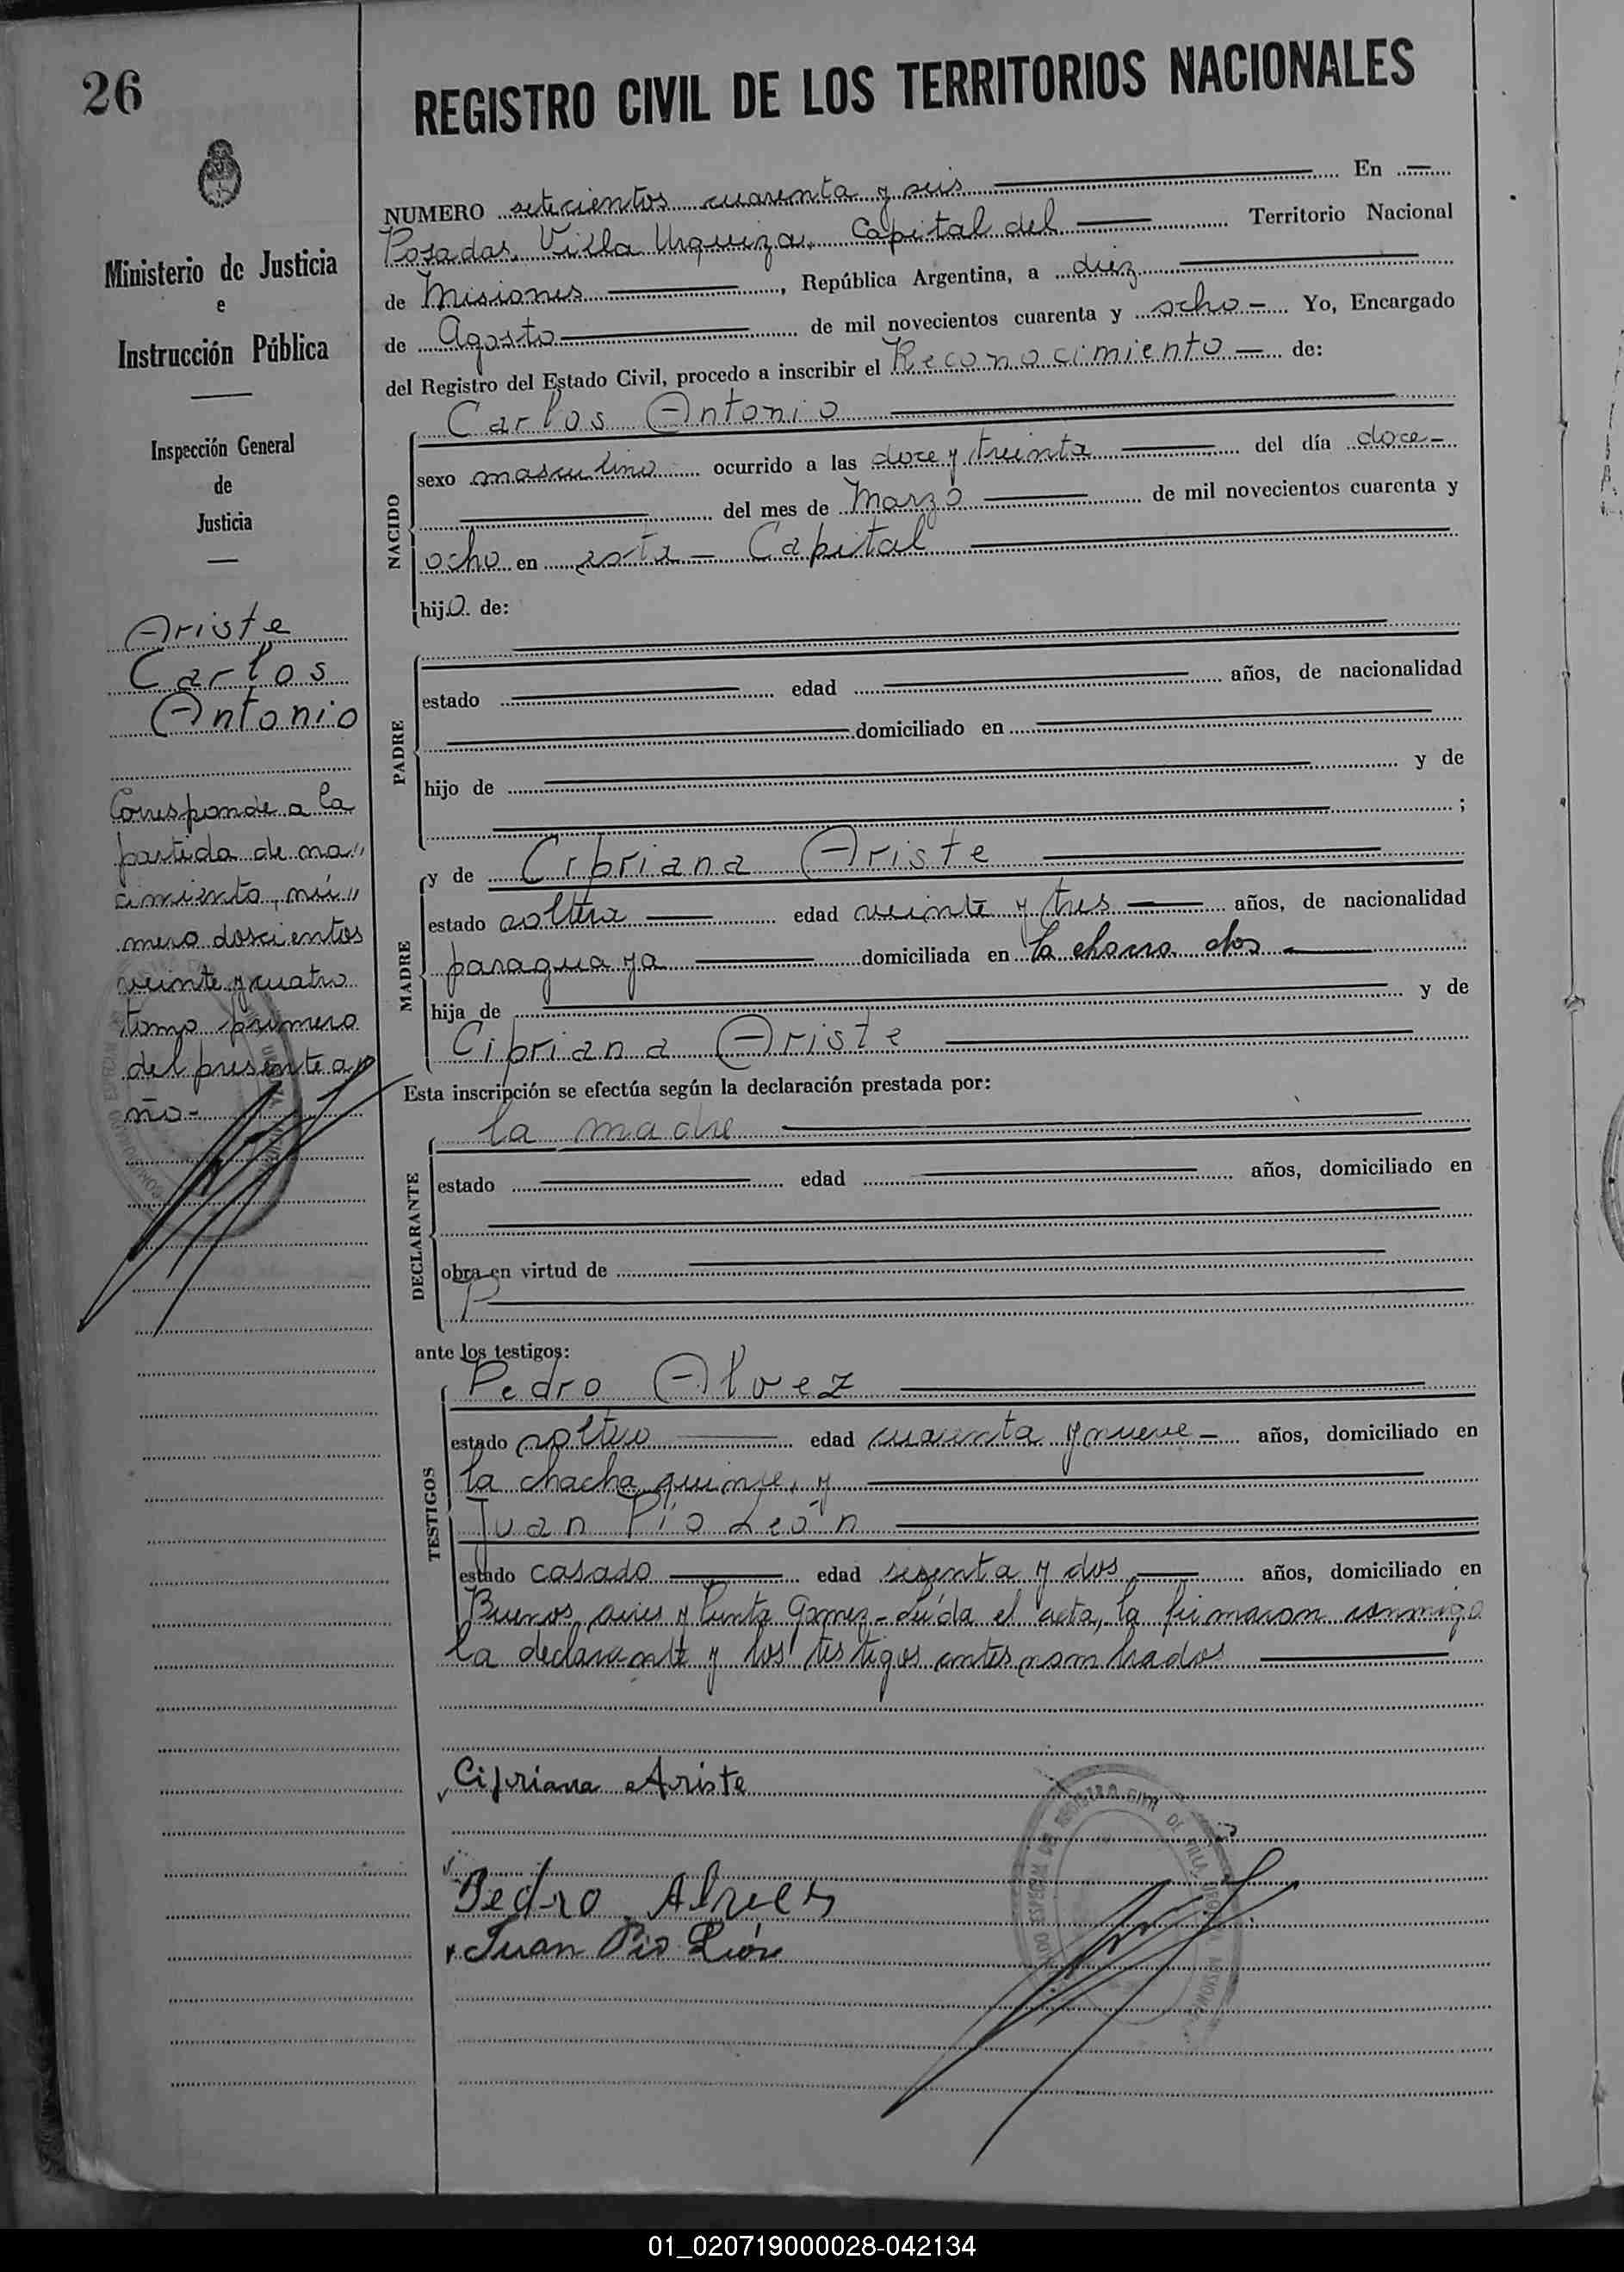 26
REGISTRO CIVIL DE LOS TERRITORIOS NACIONALES
Ministerio de Justicia
e
Instrucción Pública
Inspección General
de
Justicia
Ariste
Carlos
Antonio
Corresponde a la
partida de na"
cimiento, nú"
mero doscientos
veinte y cuatro
tomo primero
del presente a
ño-
NUMERO setecientos cuarenta y seis En
Posadas, Villa Urquiza, Capital del Territorio Nacional
de Misiones, República Argentina, a diez
de Agosto de mil novecientos cuarenta y ocho Yo, Encargado
del Registro del Estado Civil, procedo a inscribir el Reconocimiento de:
NACIDO
Carlos Antonio
sexo masculino ocurrido a las doce y treinta del día doce
del mes de Marzo de mil novecientos cuarenta y
ocho en esta Capital
hijo de:
PADRE
estado edad años, de nacionalidad
domiciliado en
hijo de y de
;
MADRE
y de Cipriana Ariste
estado soltera edad veinte y tres años, de nacionalidad
paraguaya domiciliada en la chacra dos
hija de y de
Cipriana Ariste
Esta inscripción se efectúa según la declaración prestada por:
DECLARANTE
la madre
estado edad años, domiciliado en
obra en virtud de
ante los testigos:
TESTIGOS
Pedro Alvez
estado soltero edad cuarenta y nueve años, domiciliado en
la chacha quince, y
Juan Pío León
estado casado edad sesenta y dos años, domiciliado en
Buenos aires y Punta Gomez-Leída el acta, la firmaron conmigo
la declarante y los testigos antes nombrados
Cipriana Ariste
Pedro Alves
Juan Pio León
REGISTRO CIVIL DE VILLA URQUIZA MISIONES
01_020719000028-042134